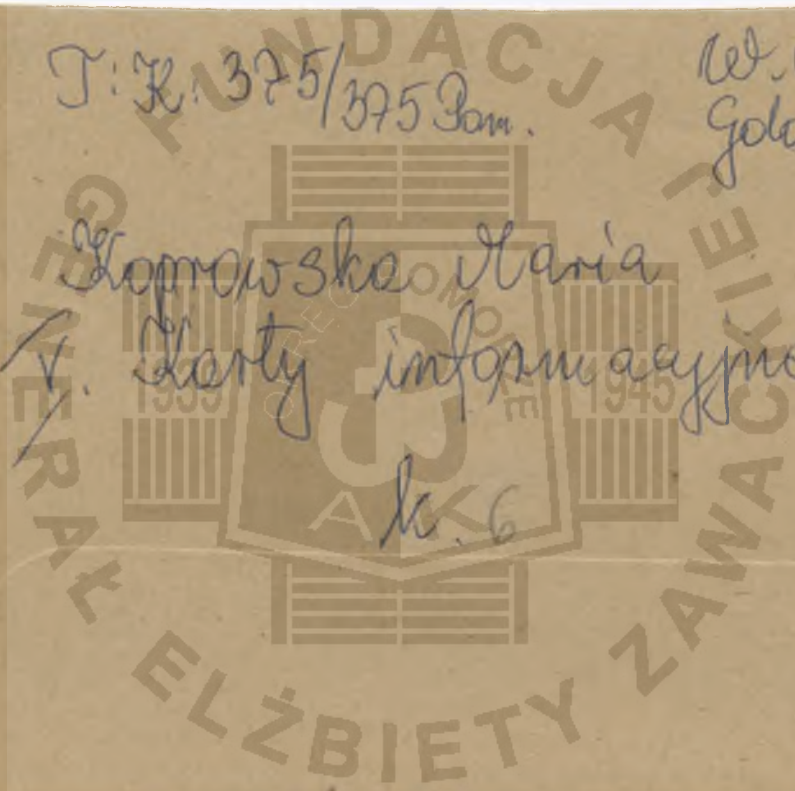 T: K: 375/375 Pom.
W.
Koprowska Maria
V. Karty informacyjne
k. 6
FUNDACJA GENERAŁ ELŻBIETY ZAWACKIEJ
OKRĘG POMORZE
1939 1945
AK